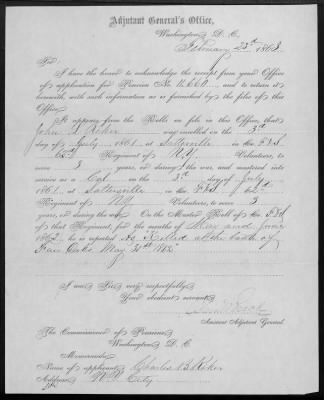 Adjutant General's Office,
Washington, D. C.
February 25th 1863
Sir:
I have the honor to acknowledge the receipt from your Office
of application for Pension No. 12,660, and to return it
herewith, with such information as is furnished by the files of this
Office.
It appears from the Rolls on file in this Office, that
John L. Riker was enrolled on the 3rd
day of July, 1861, at Saltersville in the F&S
62nd Regiment of N.Y. Volunteers, to
serve 3 years, or during the war, and mustered into
service as a Col. on the 3rd day of July,
1861, at Saltersville, in the F&S of 62nd
Regiment of NY Volunteers, to serve 3
years, or during the war. On the Muster Roll of the F&S
of that Regiment, for the months of May and June
1862, he is reported As Killed at the battle of
Fair Oaks May 31st 1862
I am, Sir, very respectfully,
Your obedient servant,
Assistant Adjutant General.
The Commissioner of Pensions,
Washington, D. C.
Memoranda:
Name of applicant, Charles B. Riker
Address, N.Y. City